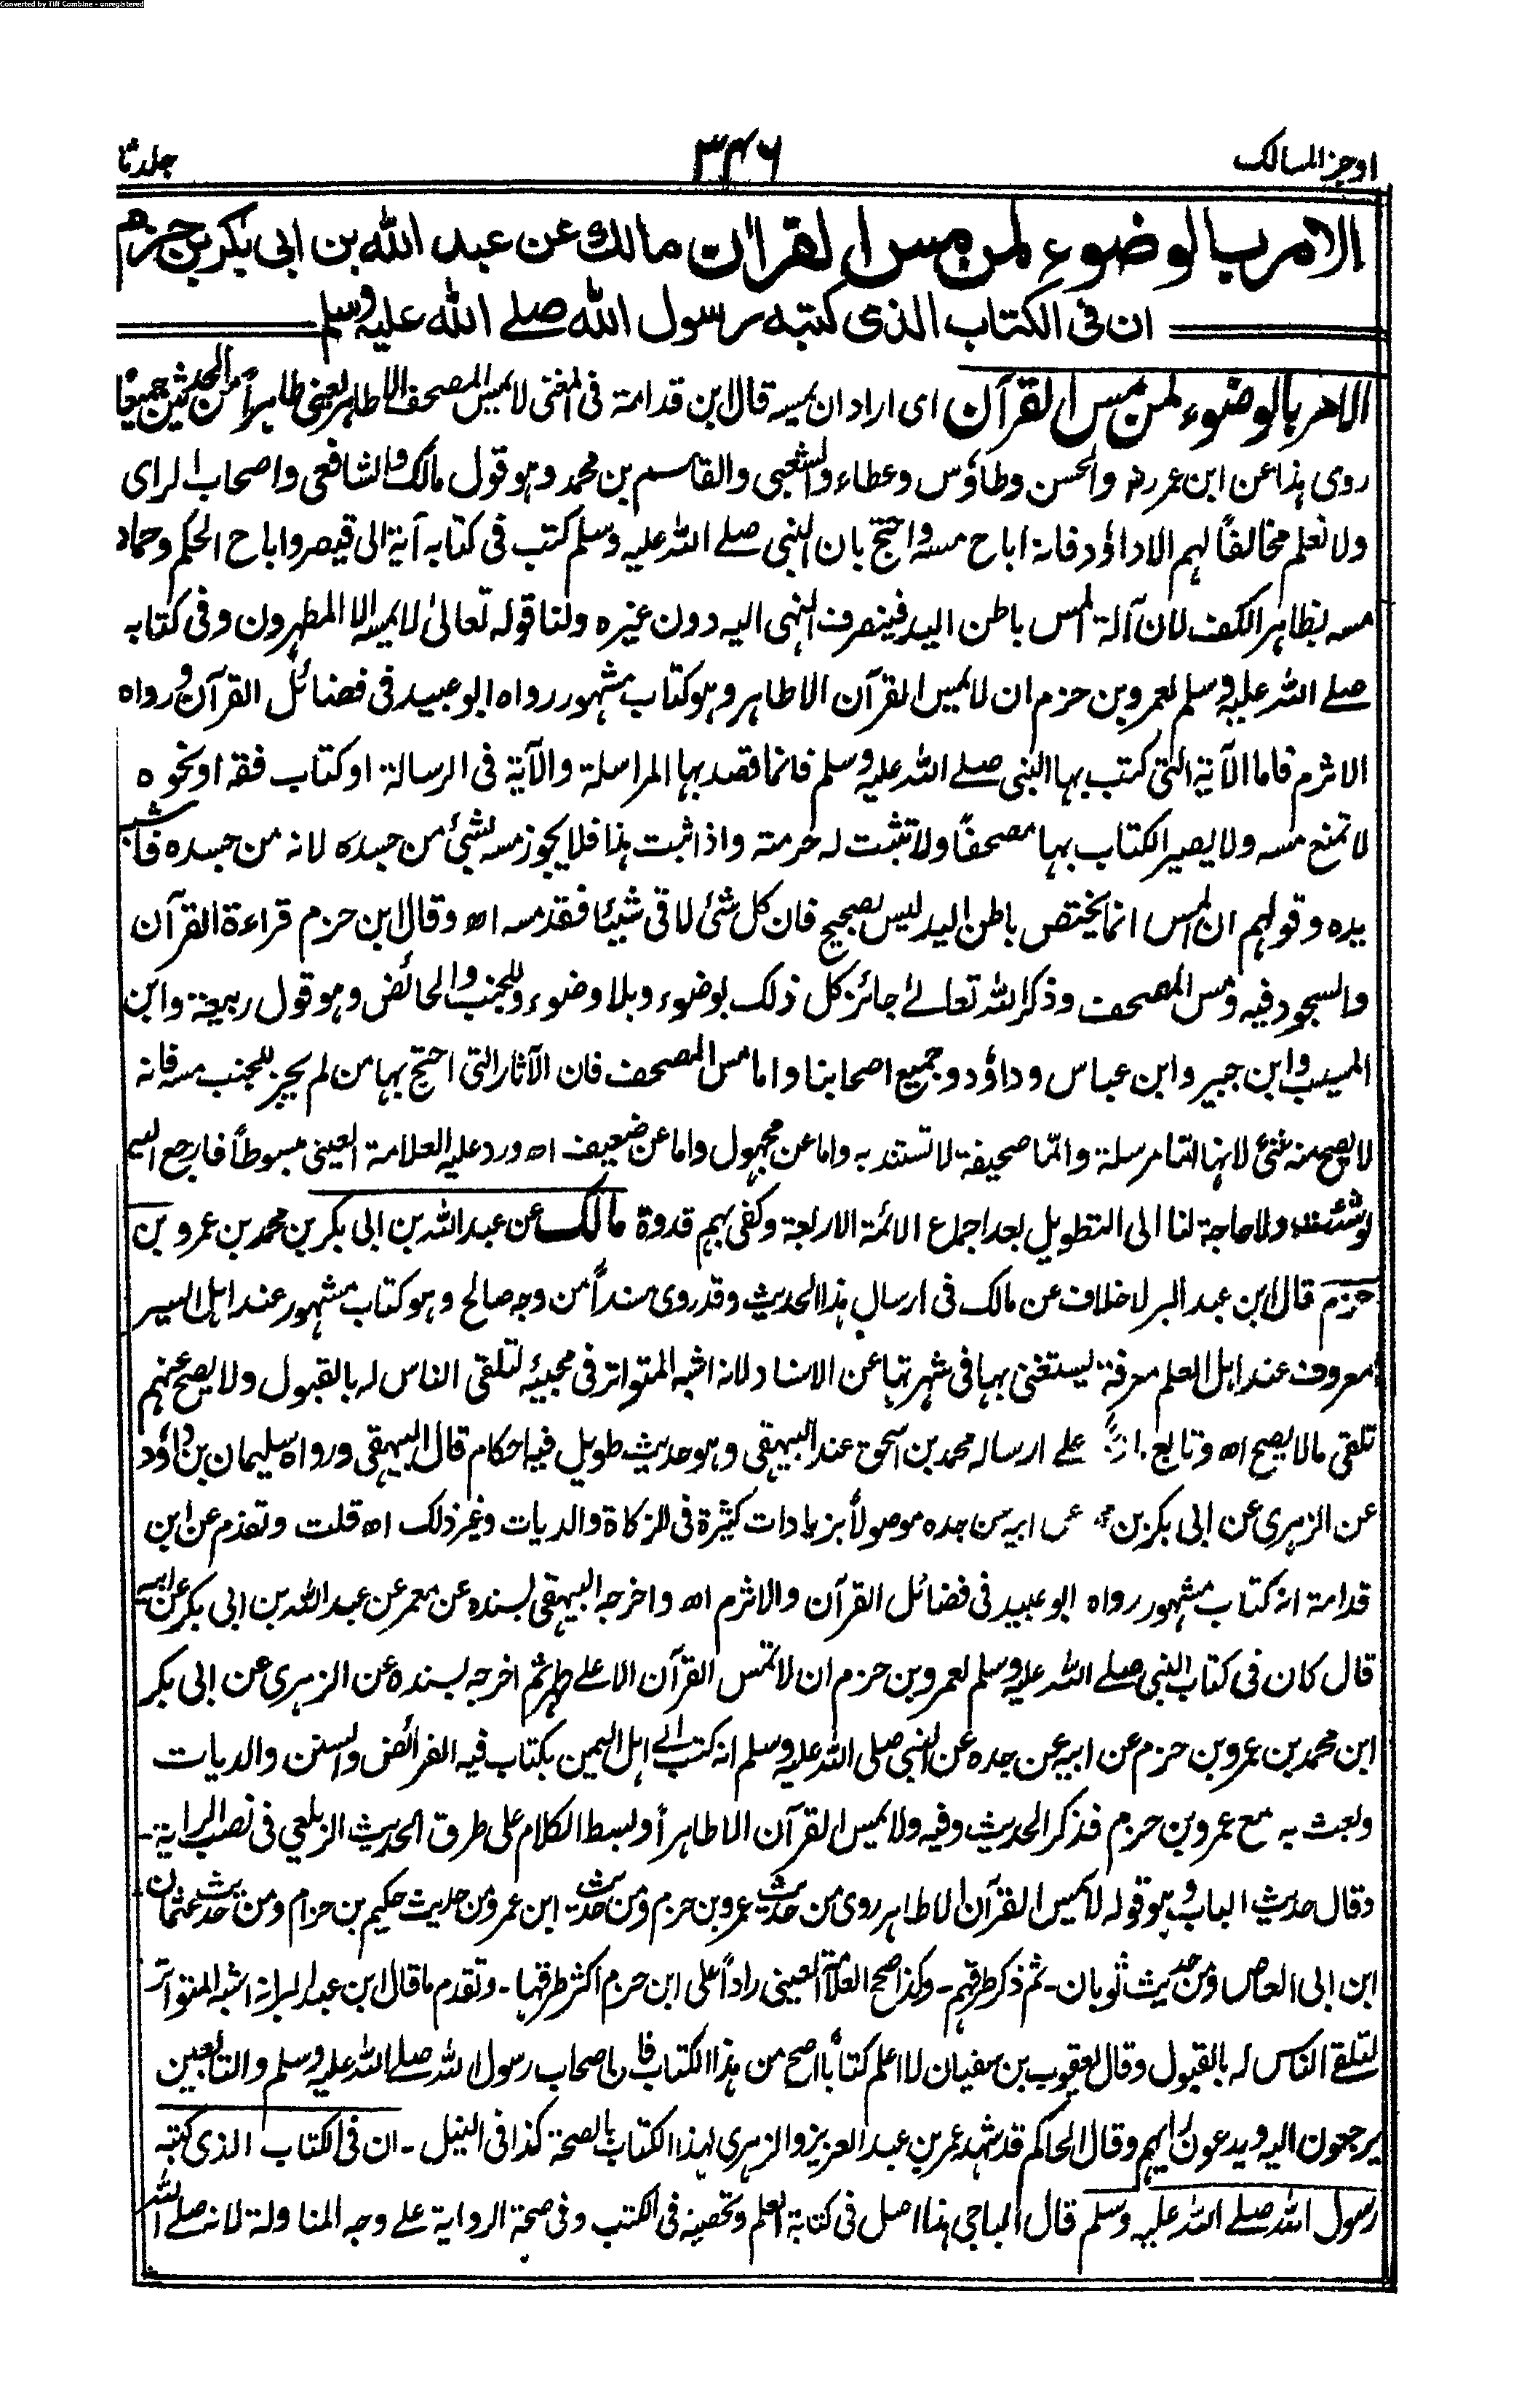 Converted by Tiff Combine - unregistered
اوجز المسالک ۳۴۶ جلد ثا
الامر بالوضوء لمن مس القرآن مالك عن عبد الله بن ابى بكر بن حزم
ان فى الكتاب الذى كتبه رسول الله صلے الله عليه وسلم
الامر بالوضوء لمن مس القرآن اى اراد ان يمسه قال ابن قدامة فى المغنى لا يمس المصحف الا طاهر يعنى طاهراً من الحدثين جميعًا
روى هذا عن ابن عمر رض والحسن وطاؤس وعطاء والشعبى والقاسم بن محمد وهو قول مالك والشافعى واصحاب الراى
ولا نعلم مخالفًا لهم الا داؤد فانه اباح مسه واحتج بان النبى صلے الله عليه وسلم كتب فى كتابه آية الى قيصر واباح الحكم وحماد
مسه بظاهر الكف لان آلة المس باطن اليد فينصرف النهى اليه دون غيره ولنا قوله تعالىٰ لا يمسه الا المطهرون وفى كتابه
صلے الله عليه وسلم لعمرو بن حزم ان لا يمس القرآن الا طاهر وهو كتاب مشهور رواه ابو عبيد فى فضائل القرآن ورواه
الاثرم فاما الآية التى كتب بها النبى صلے الله عليه وسلم فانما قصد بها المراسلة والآية فى الرسالة او كتاب فقه او نحوه
لا تمنع مسه ولا يصير الكتاب بها مصحفًا ولا تثبت له حرمته واذا ثبت هذا فلا يجوز مسه بشئ من جسده لانه من جسده فاشبه
يده وقولهم ان المس انما يختص باطن اليد ليس بصحيح فان كل شئ لاقى شيئا فقد مسه اه وقال ابن حزم قراءة القرآن
والسجود فيه ومس المصحف وذكر الله تعالے جائز كل ذلك بوضوء وبلا وضوء وللجنب والحائض وهو قول ربيعة وابن
المسيب وابن جبير وابن عباس وداؤد وجميع اصحابنا واما مس المصحف فان الآثار التى احتج بها من لم يجز للجنب مسه فانه
لا يصح منه شئ لانها اما مرسلة واما صحيفة لا تستند به واما عن مجهول واما عن ضعيف اه ورد عليه العلامة العينى مبسوطاً فارجع اليه
لو شئت ولا حاجة لنا الى التطويل بعد اجماع الائمة الاربعة وكفى بهم قدوة مالك عن عبد الله بن ابى بكر بن محمد بن عمرو بن
حزم قال ابن عبد البر لا خلاف عن مالك فى ارسال هذا الحديث وقد روى مسنداً من وجه صالح وهو كتاب مشهور عند اهل السير
معروف عند اهل العلم معرفة يستغنى بها فى شهرتها عن الاسناد لانه اشبه المتواتر فى مجيئه لتلقى الناس له بالقبول ولا يصح عنهم
تلقى ما لا يصح اه وتابع علے ارساله محمد بن اسحق عند البيهقى وهو حديث طويل فيه احكام قال البيهقى ورواه سليمان بن داؤد
عن الزهرى عن ابى بكر بن عن ابيه عن جده موصولاً بزيادات كثيرة فى الزكاة والديات وغير ذلك اه قلت وتقدم عن ابن
قدامة انه كتاب مشهور رواه ابو عبيد فى فضائل القرآن والاثرم اه واخرجه البيهقى بسنده عن معمر عن عبد الله بن ابى بكر عن ابيه
قال كان فى كتاب النبى صلے الله عليه وسلم لعمرو بن حزم ان لا تمس القرآن الا علے طهر ثم اخرجه بسنده عن الزهرى عن ابى بكر
ابن محمد بن عمرو بن حزم عن ابيه عن جده عن النبى صلى الله عليه وسلم انه كتب الے اهل اليمن بكتاب فيه الفرائض والسنن والديات
وبعث به مع عمرو بن حزم فذكر الحديث وفيه ولا يمس القرآن الا طاهر أو بسط الكلام على طرق الحديث الزيلعى فى نصب الراية-
وقال حديث الباب وهو قوله لا يمس القرآن الا طاهر روى من حديث عمرو بن حزم ومن حديث ابن عمر ومن حديث حكيم بن حزام ومن حديث عثمان
ابن ابى العاص ومن حديث ثوبان- ثم ذكر طرقهم- وكذا صحح العلامة العينى راداً على ابن حزم اكثر طرقها- وتقدم ما قال ابن عبد البر انه اشبه المتواتر
لتلقے الناس له بالقبول وقال يعقوب بن سفيان لا اعلم كتاباً اصح من هذا الكتاب فان اصحاب رسول الله صلے الله عليه وسلم والتابعين
يرجعون اليه ويدعون رأيهم وقال الحاكم قد شهد عمر بن عبد العزيز والزهرى لهذا الكتاب بالصحة كذا فى النيل - ان فى الكتاب الذى كتبه
رسول الله صلے الله عليه وسلم قال الباجى هذا اصل فى كتابة العلم وتحصينه فى الكتب وفى صحة الرواية علے وجه المناولة لانه صلے الله